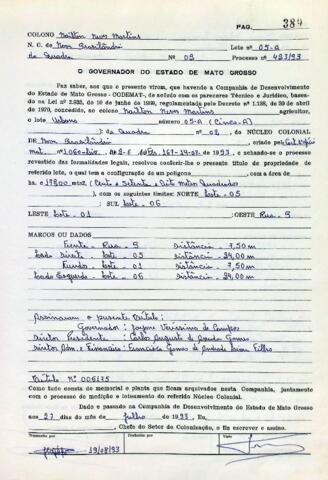 PAG. 384
COLONO Nailton Neves Martins
N. C. de Nova Lote nº 05-A
da Quadra Nº 09 Processo nº 493/93
O GOVERNADOR DO ESTADO DE MATO GROSSO
Faz saber, aos que o presente virem, que havendo a Companhia de Desenvolvimento
do Estado de Mato Grosso - CODEMAT-, de acôrdo com os pareceres Técnico e Jurídico, basea-
do na Lei nº 2.935, de 10 de junho de 1969, regulamentada pelo Decreto nº 1.138, de 29 de abril
de 1970, concedido, ao colono Nailton Neves Martins agricultor,
o lote Urbano número 05-A (Cinco-A)
da Quadra nº 09, do NÚCLEO COLONIAL
DE Nova criado pela
mat. nº 1060 de 1993, e achando-se o processo
revestido das formalidades legais, resolveu conferir-lhe o presente título de propriedade de
referido lote, o qual tem a configuração de um polígono, com a área de
ha. e 178,00 mts² (Cento e Setenta e Oito Metros Quadrados
), com os seguintes limites: NORTE Lote 05
SUL Lote 06
LESTE Lote 01 OESTE Rua 9
MARCOS OU DADOS
Frente Rua 9 Distância 7,50 m
Lado Direito Lote 05 Distância 24,00 m
Fundos Lote 01 Distância 7,50 m
Lado Esquerdo Lote 06 Distância 24,00 m
Assinaram o presente Título:
Governador: Jayme Veríssimo de Campos
Diretor Presidente Carlos Augusto de Gomes
Diretor Adm. e Financeiro: Francisco Gomes de Andrade Lima Filho
Título nº 006175
Como tudo consta do memorial e planta que ficam arquivados nesta Companhia, juntamente
com o processo de medição e loteamento do referido Núcleo Colonial.
Dado e passado na Companhia de Desenvolvimento do Estado de Mato Grosso
aos 27 dias do mês de Julho de 1993, Eu,
, Chefe do Setor de Colonização, o fiz escrever e assino.
Transcrito por
Visto
19/08/93